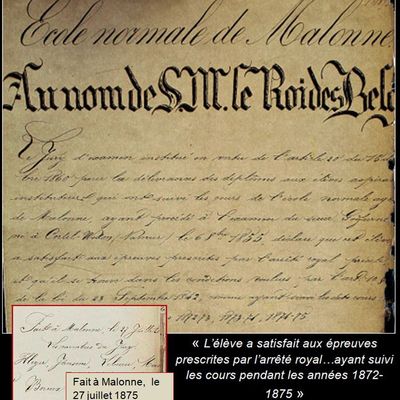 Ecole normale de Malonne
Au nom de S.M. le Roi des Bel
Le Jury d'examen institué en vertu de l'article 20 du
1860 pour la délivrance des diplômes aux élèves
instituteurs qui ont suivi les cours de l'école normale
de Malonne, ayant procédé à l'examen du sieur
né à (Namur) le 6 8bre 1855, déclare que cet élève
a satisfait aux épreuves prescrites par l'arrêté royal
et qu'il se trouve dans les conditions voulues par l'art. 10
de la loi du 23 Septembre 1842, comme ayant suivi les cours
1872-3, 1873-4, 1874-75
Fait à Malonne, le 27 Juillet
du Jury
Fait à Malonne, le
27 juillet 1875
« L'élève a satisfait aux épreuves
prescrites par l'arrêté royal…ayant suivi
les cours pendant les années 1872-
1875 »